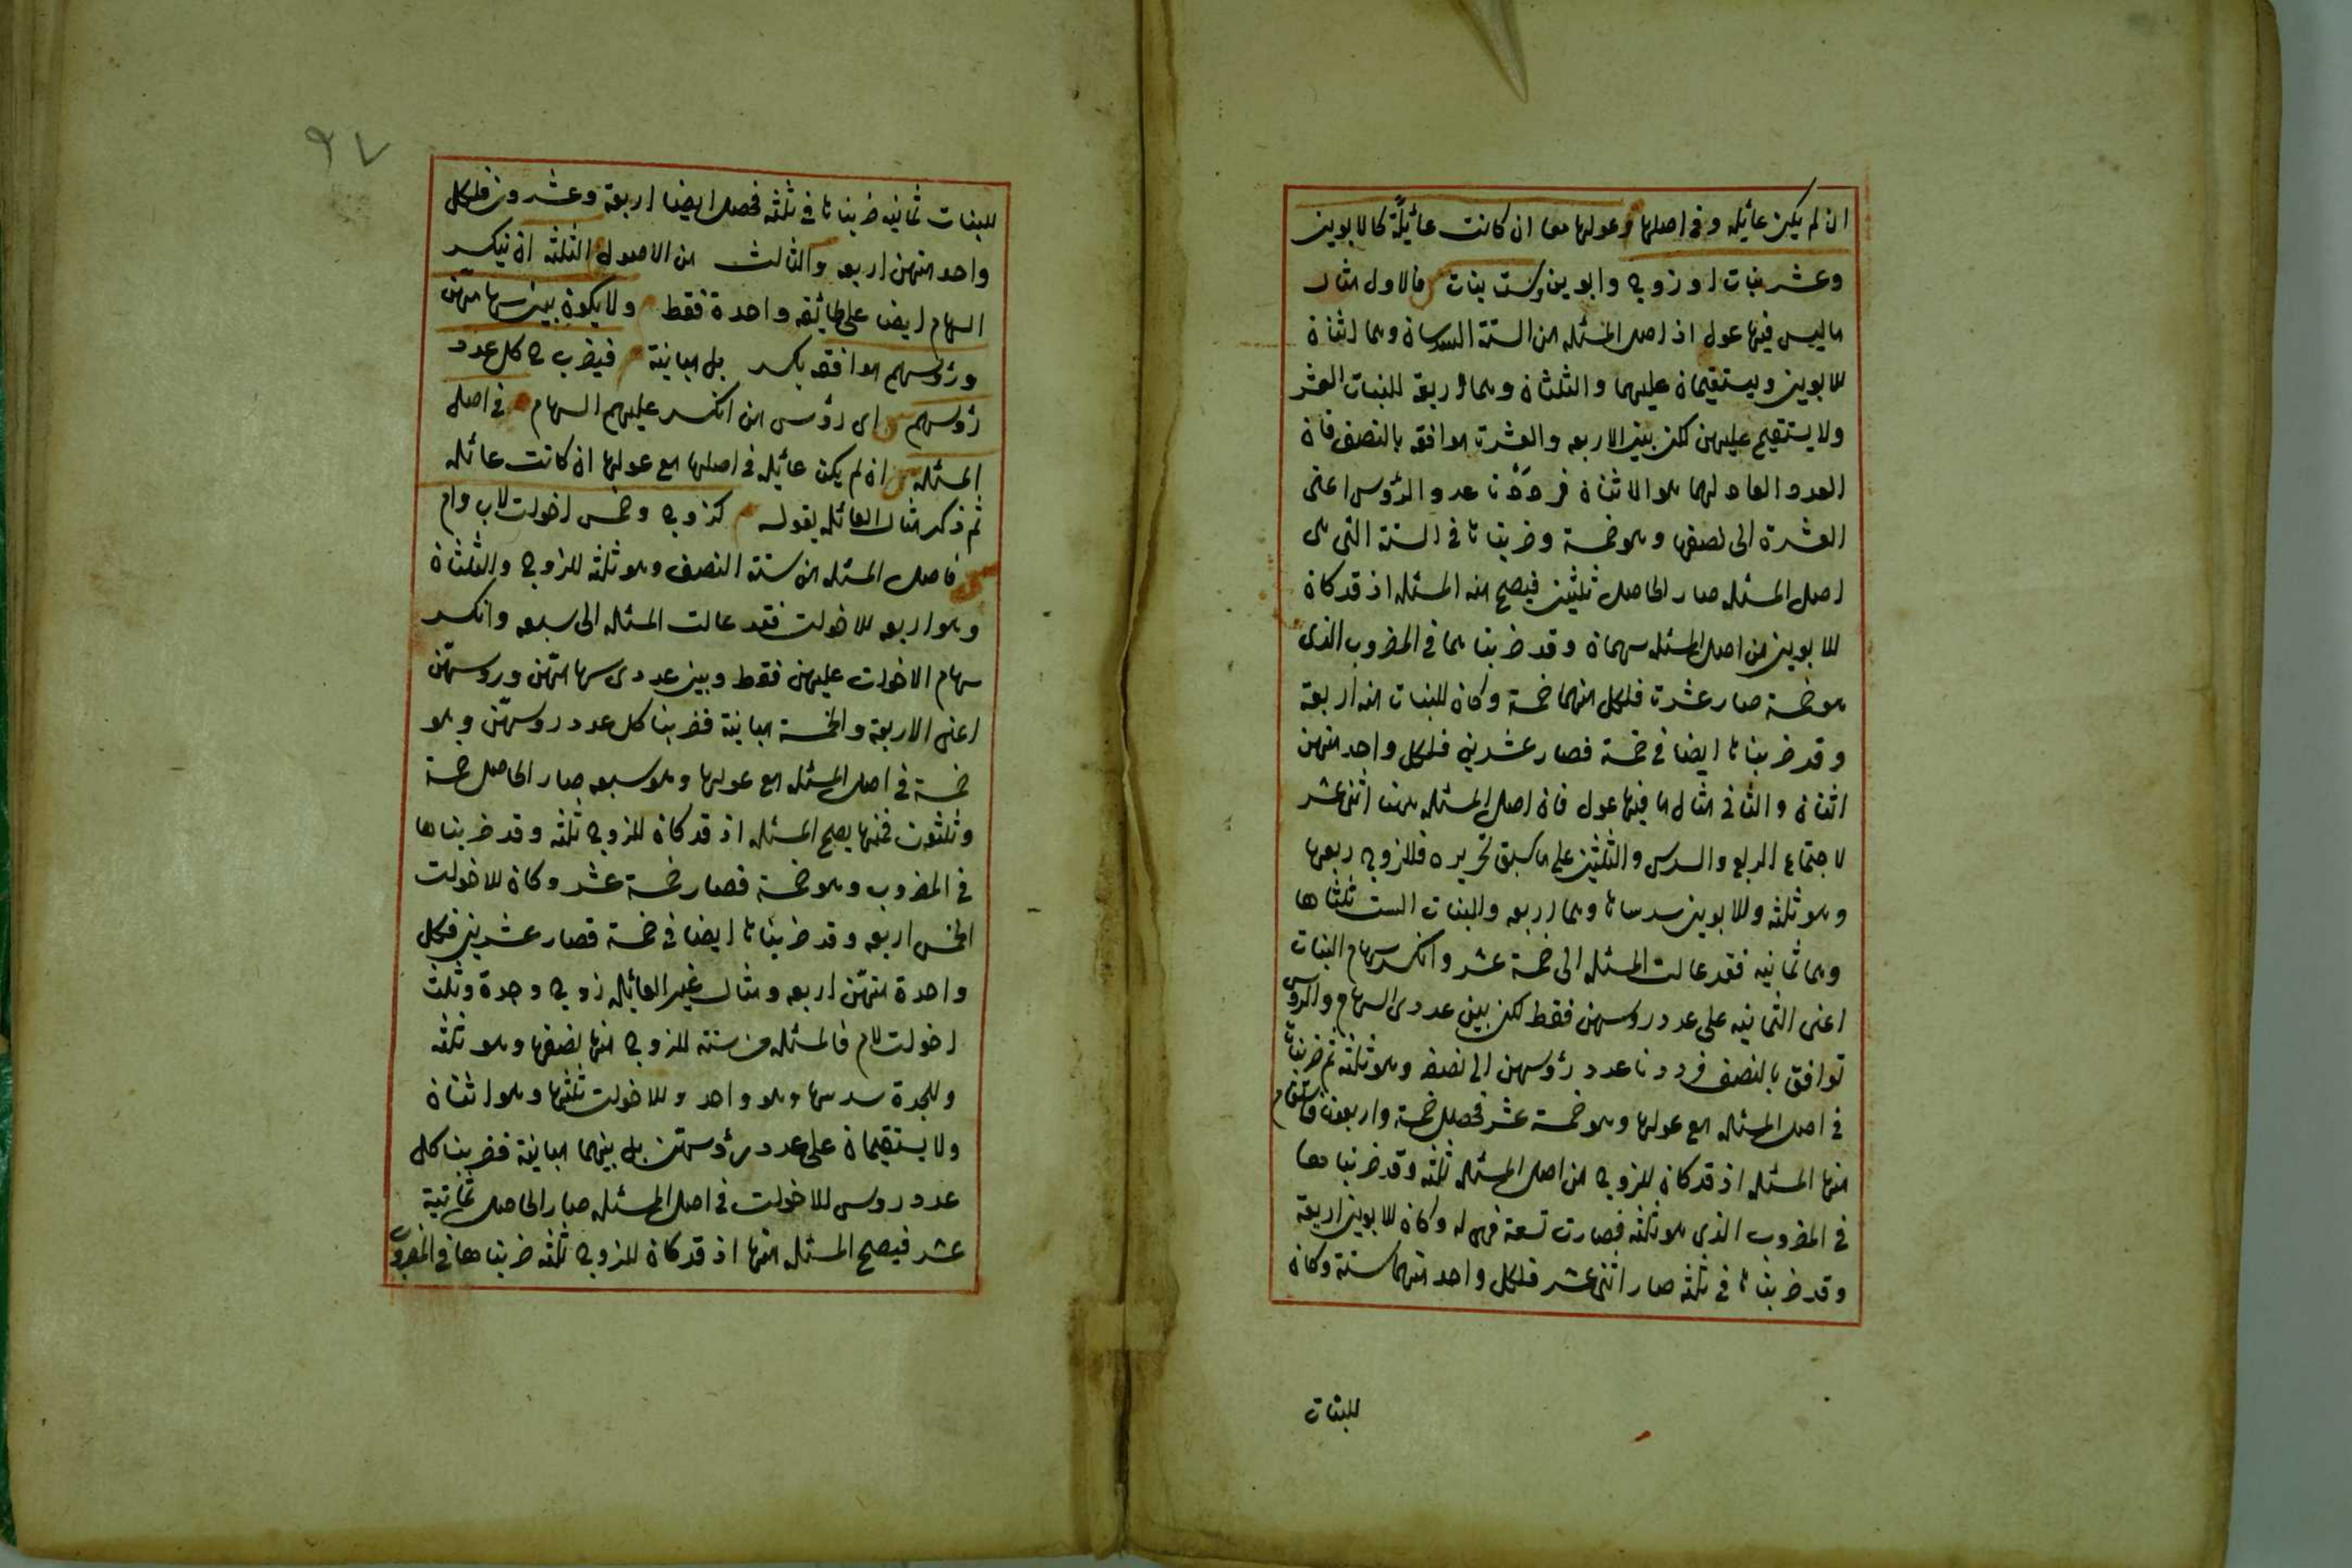 ان لم يكن عائله وفى اصلها وعولها معا ان كانت عائلة كالابوين
وعشر بنات او زوج وابوين وست بنات فالاول مثال
ما ليس فيها عول اذ اصل المسئله من الستة السدسان وهما اثنان
للابوين ويستقيمان عليهما والثلثان وهما اربعة للبنات العشر
ولا يستقيم عليهن لكن بين الاربعه والعشرة موافقه بالنصف فان
العدد العاد لهما هو الاثنان فرددنا عدد الرؤس اعنى
العشرة الى نصفها وهو خمسة وضربناها فى الستة التى هى
اصل المسئله صار الحاصل ثلثين فيصح منه المسئله اذ قد كان
للابوين من اصل المسئله سهمان وقد ضربناهما فى المضروب الذى
هو خمسة صار عشرة فلكل منهما خمسة وكان للبنات منه اربعة
وقد ضربناها ايضا فى خمسة فصار عشرين فلكل واحد منهن
اثنان والثانى مثال ما فيها عول فان اصل المسئله هنا اثنى عشر
لاجتماع الربع والسدس والثلثين على ما سبق تحريره فللزوج ربعها
وهو ثلثه وللابوين سدساها وهما اربعه وللبنات الست ثلثاها
وهما ثمانيه فقد عالت المسئله الى خمسة عشر وانكسر سهام البنات
اعنى الثمانيه على عدد روسهن فقط لكن بين عددى السهام والروس
توافق بالنصف فرددنا عدد رؤسهن الى نصفه وهو ثلثة ثم ضربناها
فى اصل المسئله مع عولها وهو خمسة عشر فحصل خمسة واربعون فاستقام
منها المسئله اذ قد كان للزوج من اصل المسئله ثلثه وقد ضربناها
فى المضروب الذى هو ثلثه فصارت تسعة فهى له وكان للابوين اربعة
وقد ضربناها فى ثلثه صار اثنى عشر فلكل واحد منهما ستة وكان
للبنات
٩٧
للبنات ثمانيه ضربناها فى ثلثه فحصل ايضا اربعة وعشرون فلكل
واحد منهن اربعه والثالث من الاصول الثلثه ان ينكسر
السهام ايضا على طائفه واحدة فقط ولا يكون بين سهامهن
ورؤسهم موافقه بكسر بل مباينة فيضرب ح كل عدد
رؤسهم اى رؤس من انكسر عليهم السهام فى اصل
المسئله ان لم يكن عائله فى اصلها مع عولها ان كانت عائله
ثم ذكر مثال العائله بقوله كزوج وخمس اخوات لاب وام
فاصل المسئله من ستة النصف وهو ثلثه للزوج والثلثان
وهو اربعه للاخوات فقد عالت المسئله الى سبعه وانكسر
سهام الاخوات عليهن فقط وبين عددى سهامهن وروسهن
اعنى الاربعة والخمسة مباينة فضربنا كل عدد روسهن وهو
خمسة فى اصل المسئله مع عولها وهو سبعه صار الحاصل خمسة
وثلثون فمنها يصح المسئله اذ قد كان للزوج ثلثه وقد ضربناها
فى المضروب وهو خمسة فصار خمسة عشر وكان للاخوات
الخمس اربعه وقد ضربناها ايضا فى خمسة فصار عشرين فلكل
واحدة منهن اربعه ومثال غير العائله زوج وجدة وثلث
اخوات لام فالمسئله من ستة للزوج منها نصفها وهو ثلثه
وللجدة سدسها وهو واحد وللاخوات ثلثها وهو اثنان
ولا يستقيمان على عدد رؤسهن بل بينهما مباينة فضربنا كل
عدد روس للاخوات فى اصل المسئله صار الحاصل ثمانية
عشر فيصح المسئله منها اذ قد كان للزوج ثلثه ضربناها فى المضروب